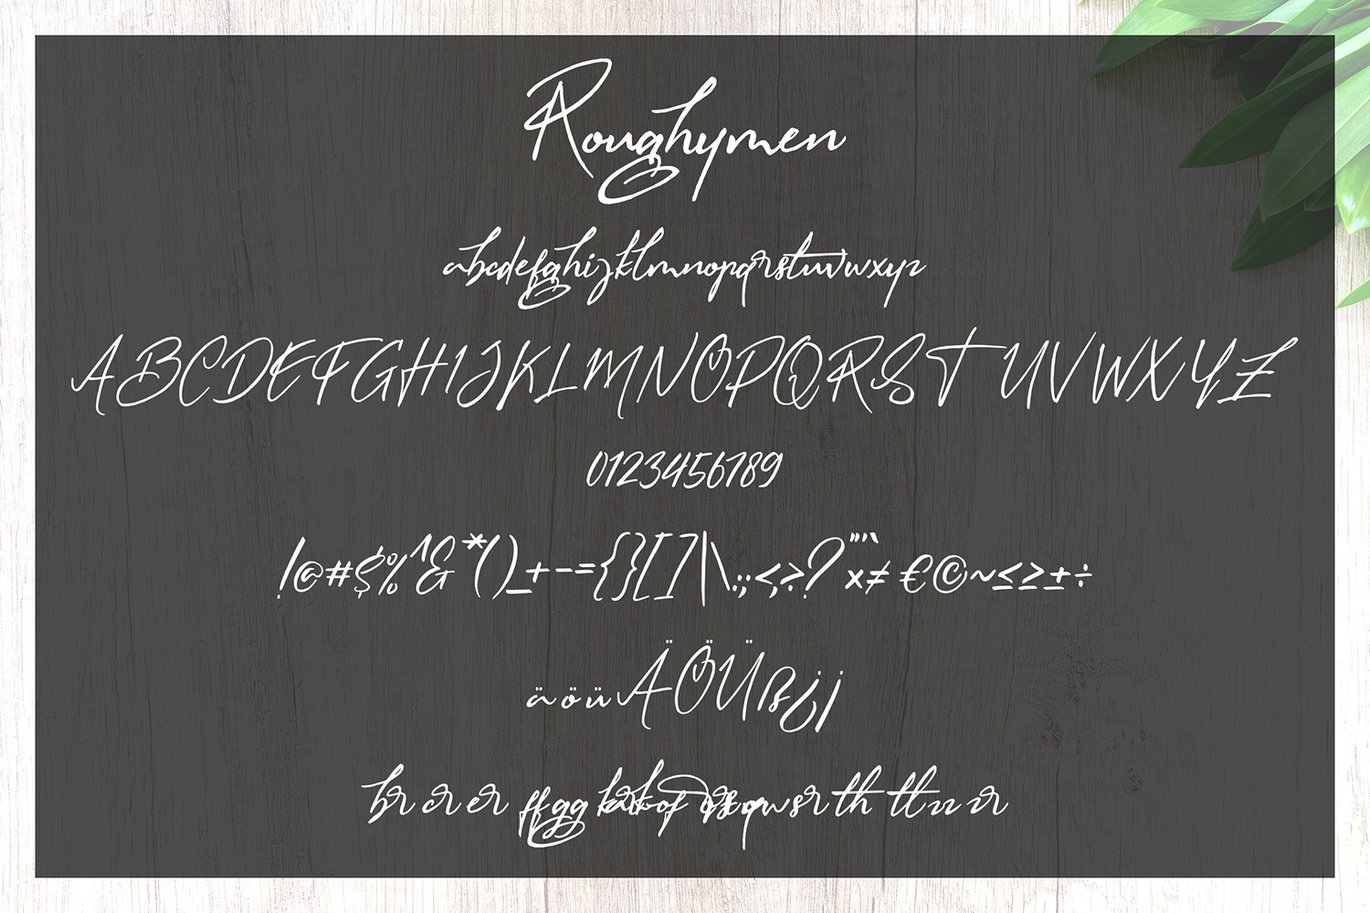 Roughymen
abcdefghijklmnopqrstuvwxyz
ABCDEFGHIJKLMNOPQRSTUVWXYZ
0123456789
!@#$%^&*()_+-={}[]|\:;<,>.?"'`×≠€©~≤≥±÷
äöüÄÖÜß¿¡
br cr er ff gg
th tt zz